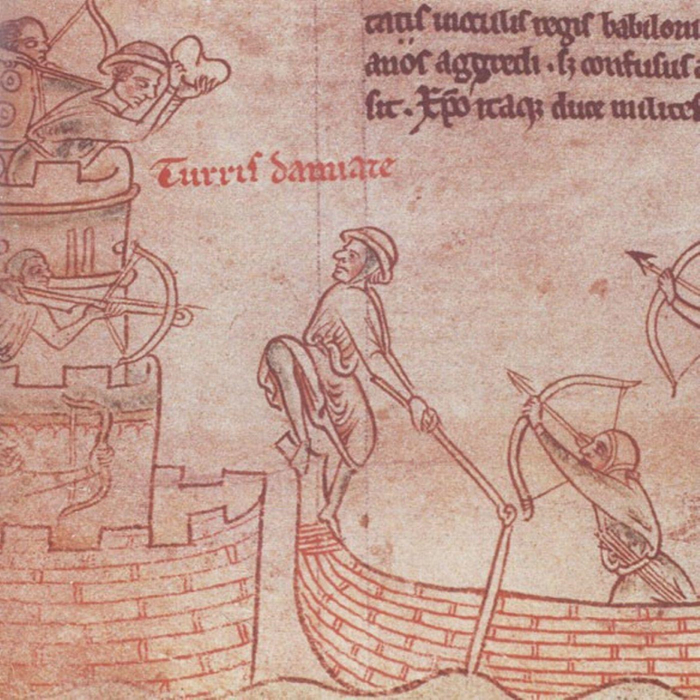 tatis inoculis regis babiloni
anos aggredi . sꝫ confusus
sit . Xp̃o itaqꝫ duce milites
Turris damiate